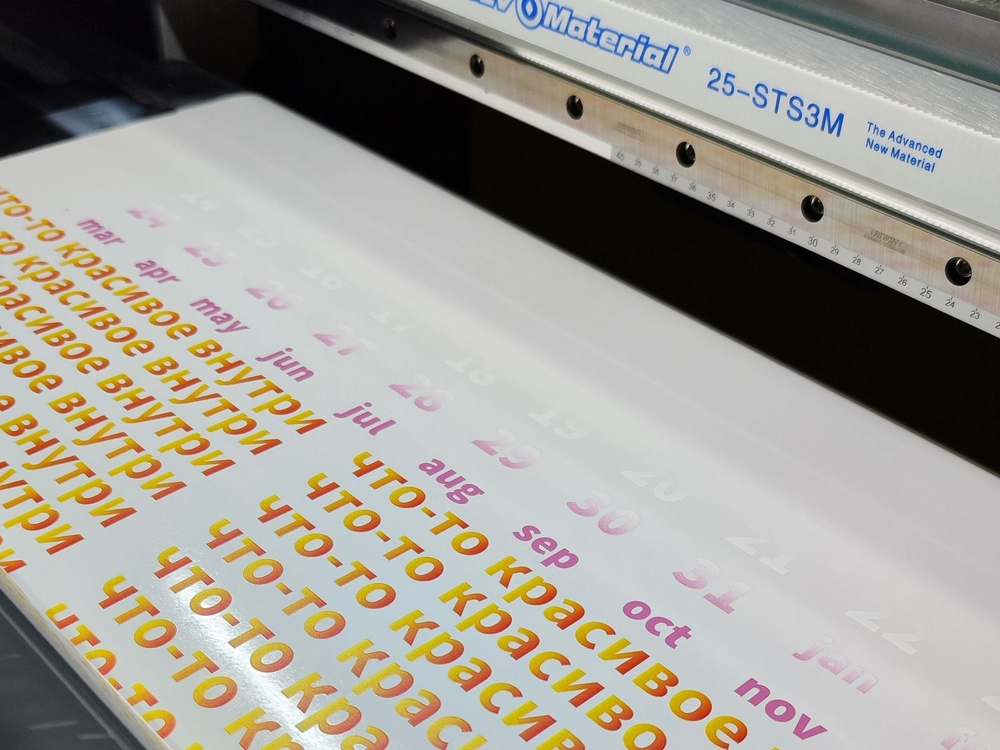 Material®
25-STS3M
The Advanced
New Material
40 39 38 37 36 35 34 33 32 31 30 29 28 27 26 25 24 23
HIWIN
16 17 18 19 20 21 22
24 25 26 27 28 29 30 31 jan
mar apr may jun jul aug sep oct nov
что-то красивое внутри
что-то красивое внутри
красивое внутри
внутри
внутри
что-то красивое
что-то красивое
что-то
что-то
что-то
что-то
что-то